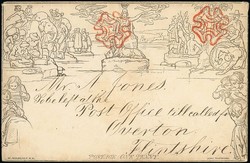 Mr. A. Jones
To be left at the
Post Office till called for
Overton
Flintshire
POSTAGE